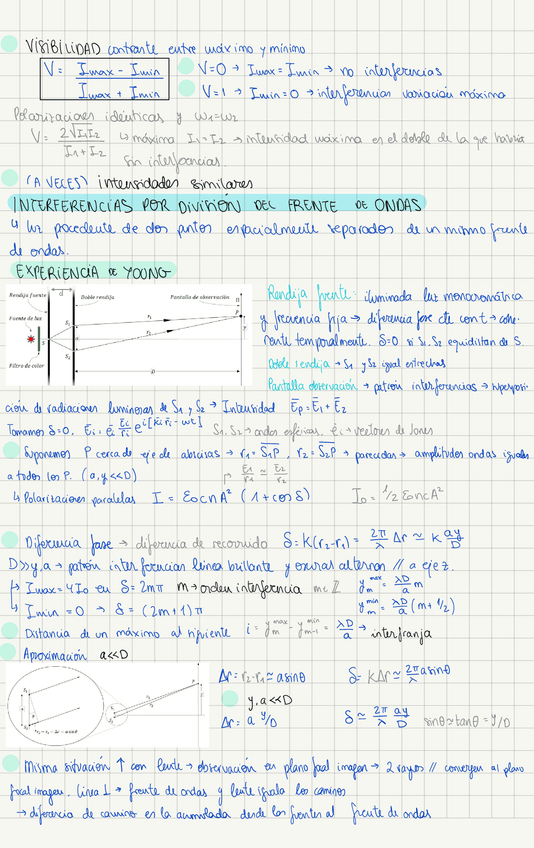 VISIBILIDAD contraste entre máximo y mínimo
V = (Imax − Imin) / (Imax + Imin)
V=0 → Imax = Imin → no interferencias
V=1 → Imin=0 → interferencias variación máxima
Polarizaciones idénticas y ω1=ω2
V = 2√I1I2 / (I1+I2) ↳ máxima I1=I2 → intensidad máxima es el doble de la que habría
sin interferencias.
(A VECES) intensidades similares
INTERFERENCIAS POR DIVISIÓN DEL FRENTE DE ONDAS
↳ luz procedente de dos puntos espacialmente separados de un mismo frente
de ondas.
EXPERIENCIA DE YOUNG
Rendija fuente
d
Doble rendija
Pantalla de observación
Fuente de luz
Filtro de color
S
S1
S2
r1
r2
P
D
Rendija fuente: iluminada luz monocromática
y frecuencia fija → diferencia fase cte con t → cohe-
rente temporalmente. δ=0 si S1, S2 equidistan de S.
Doble rendija → S1 y S2 igual estrechas
Pantalla observación → patrón interferencias → superposi-
ción de radiaciones luminosas de S1 y S2 → Intensidad Ēp = Ē1 + Ē2
Tomamos δ=0,
S1, S2 → ondas esféricas,
Suponemos P cerca de eje de abscisas → r1 = S1P, r2 = S2P → parecidas → amplitudes ondas iguales
a todos los P. (a, y << D)
E1/r1 ≃ E2/r2
↳ Polarizaciones paralelas I = ε0cnA² (1+cos δ) I0 = 1/2 ε0ncA²
Diferencia fase → diferencia de recorrido δ = K(r2−r1) = 2π/λ Δr ≃ K ay/D
D>>y,a → patrón interferencias línea brillante y oscuras alternan // a eje z.
↳ Imax = 4I0 en δ = 2mπ m → orden interferencia m∈ℤ y_m^max = λD/a m
↳ Imin = 0 → δ = (2m+1)π y_m^min = λD/a (m+1/2)
Distancia de un máximo al siguiente i = y_m^max − y_m−1^max = λD/a → interfranja
Aproximación a<<D
Δr = r2−r1 ≃ a sinθ δ = KΔr ≃ 2π/λ a sinθ
y, a << D
Δr = a y/D δ ≃ 2π/λ ay/D sinθ ≃ tanθ = y/D
Misma situación ↑ con lente → observación en plano focal imagen → 2 rayos // convergen al plano
focal imagen, línea ⊥ → frente de ondas y lente iguala los caminos
→ diferencia de camino es la acumulada desde las fuentes al frente de ondas